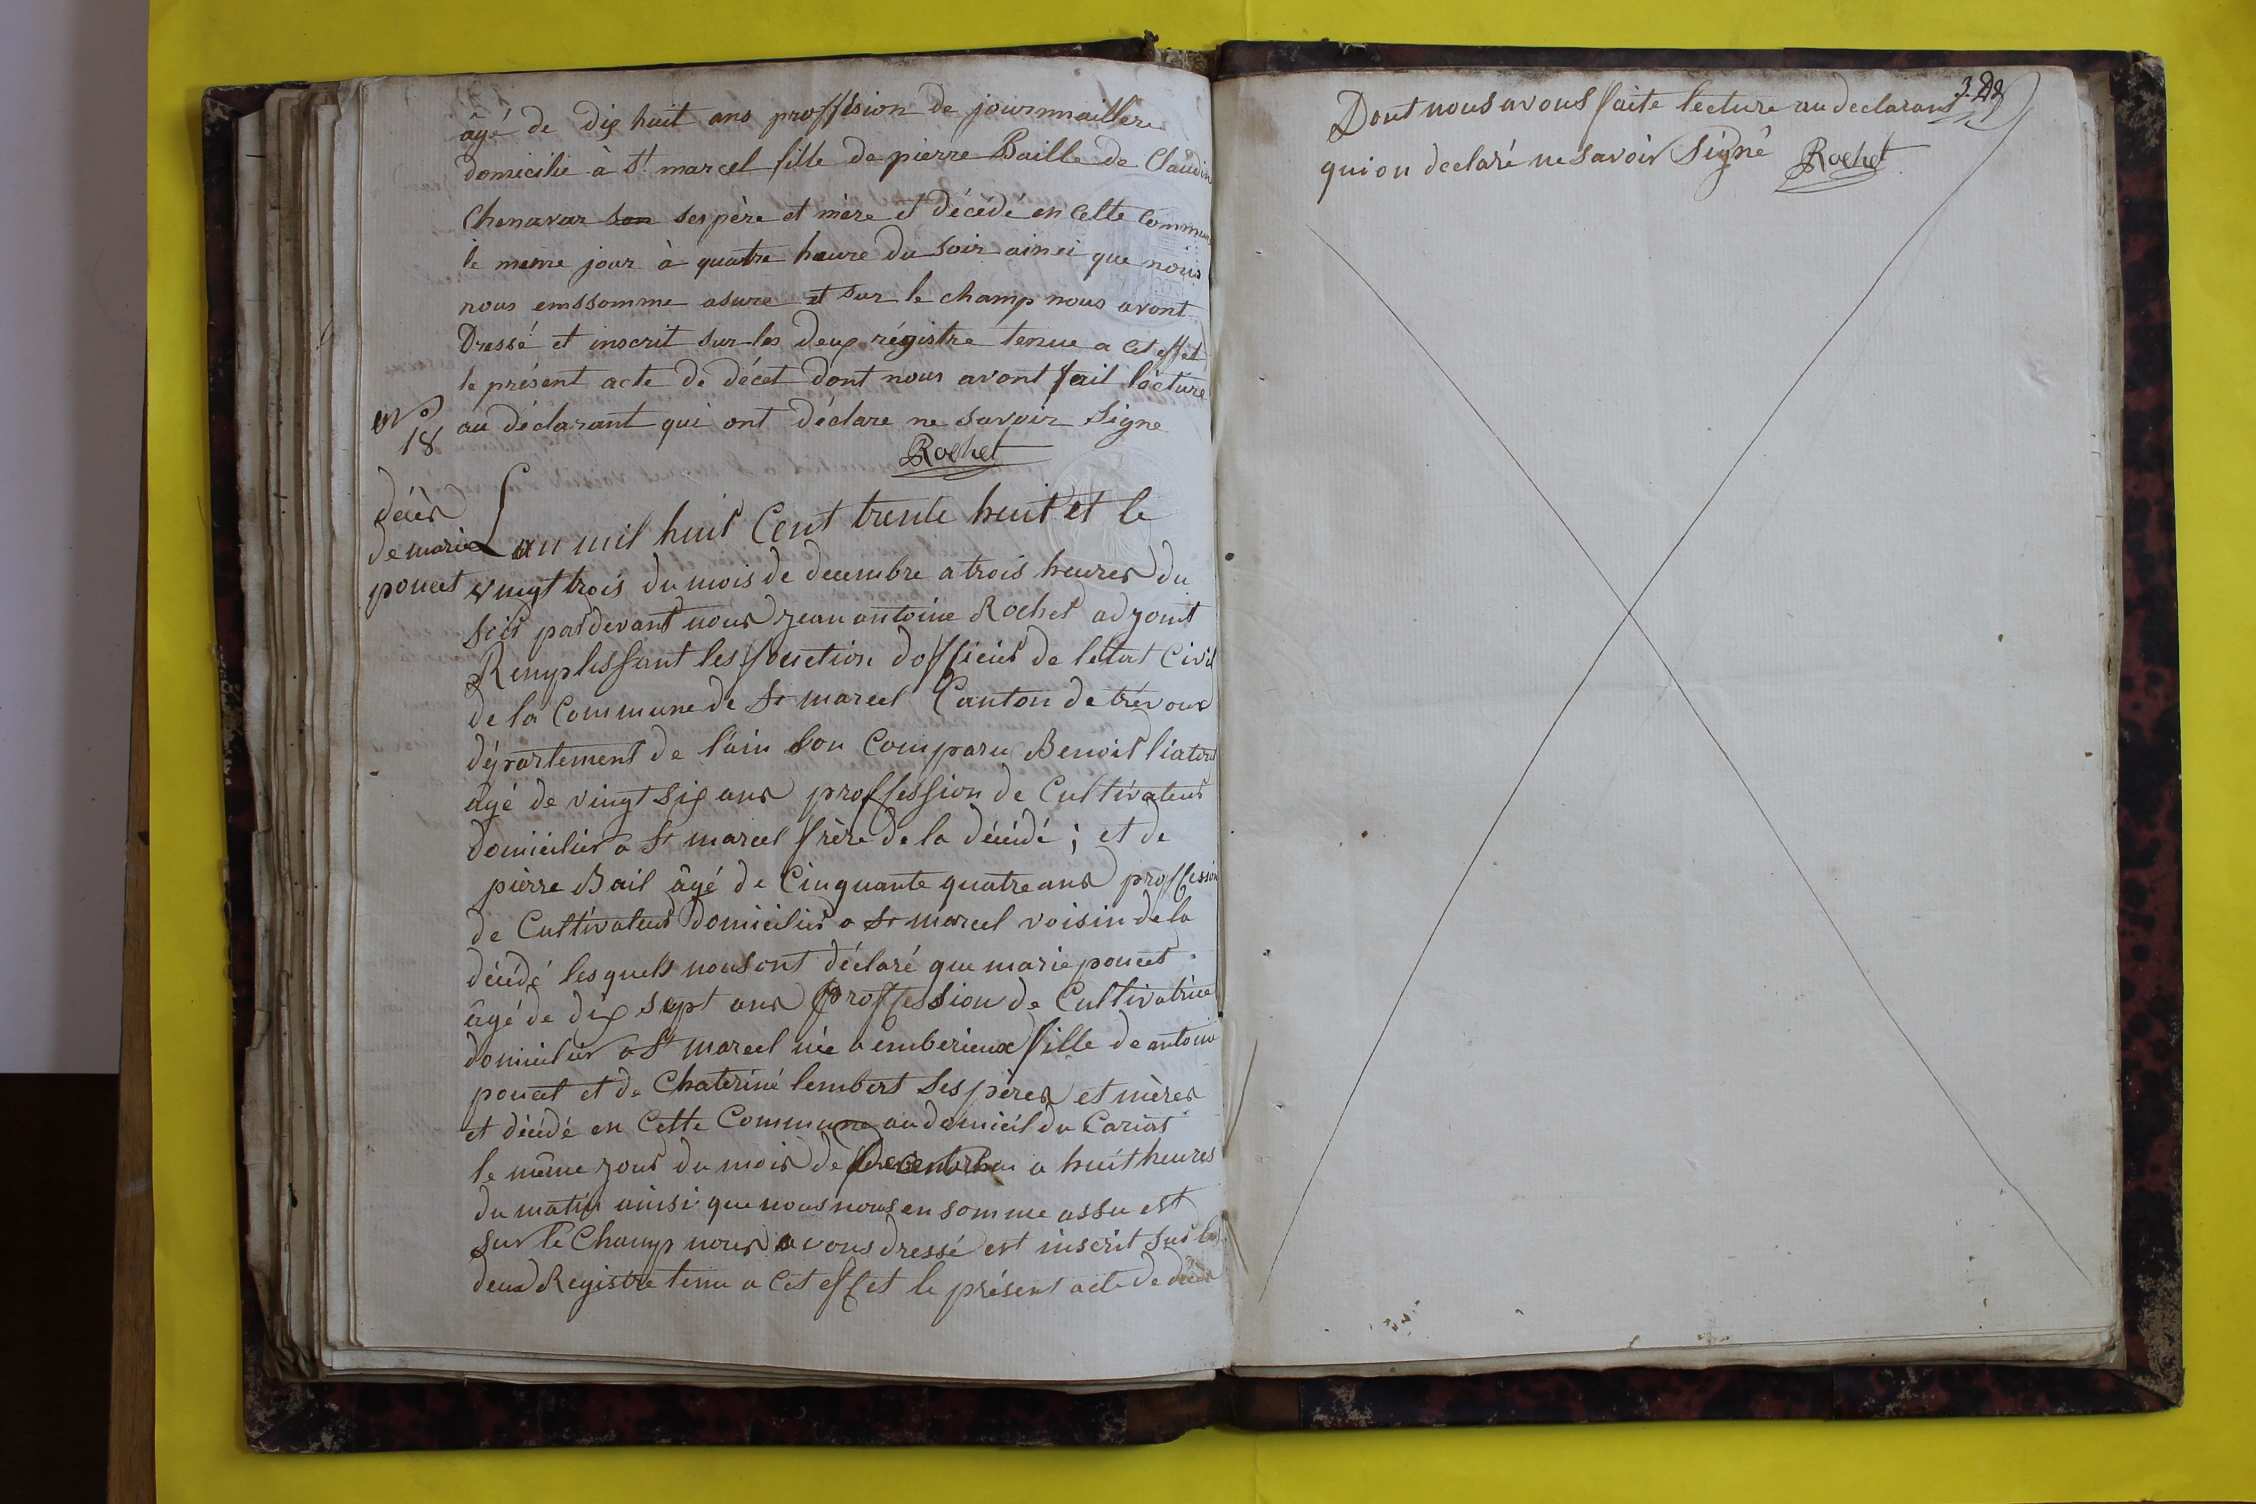 âgé de dix huit ans proffesion de journnaillere
domicilié à St marcel fille de pierre Baille de Claudin
Chenavar son ses père et mère et décéde en cette Commune
le même jour à quatre heure du soir ainsi que nous
nous emssomme asure et sur le champ nous avont
Dressé et inscrit sur les deux régistre tenue a cet effet
le présent acte de décet dont nous avont fait lecture
au déclarant qui ont déclare ne savoir signe
Rochet
No
18
décès
de marie
poncet
Lan mil huit Cent trente huit et le
vingt trois du mois de decembre a trois heures du
soir pardevant nous jean antoine Rochet adjoint
Remplissant les fonction dofficier de letat Civil
de la Commune de St marcel Canton de trévoux
département de lain son Comparu Benoit liatord
âgé de vingt six ans proffession de Cultivateur
domicilier a St marcel frère de la décédé ; et de
pierre Bail âgé de Cinquante quatre ans proffession
de Cultivateur domicilier a St marcel voisin de la
décédé lesquels nous ont déclaré que marie poncet
âgé de dix sept ans proffession de Cultivatrice
domicilier a St marcel née a emberieux fille de antoine
poncet et de Chateriné lembert ses pères et mères
et décédé en Cette Commune au domicil du Cariat
le même jour du mois de Decembre a huit heures
du matin ainsi que nous nous en somme assu est
sur le Champ nous avons dressé est inscrit sur les
deux Registre tenu a cet effet le présent acte de décès
322
Dont nous avons faite lecture au declarant
qui on declaré ne savoir Signé Rochet